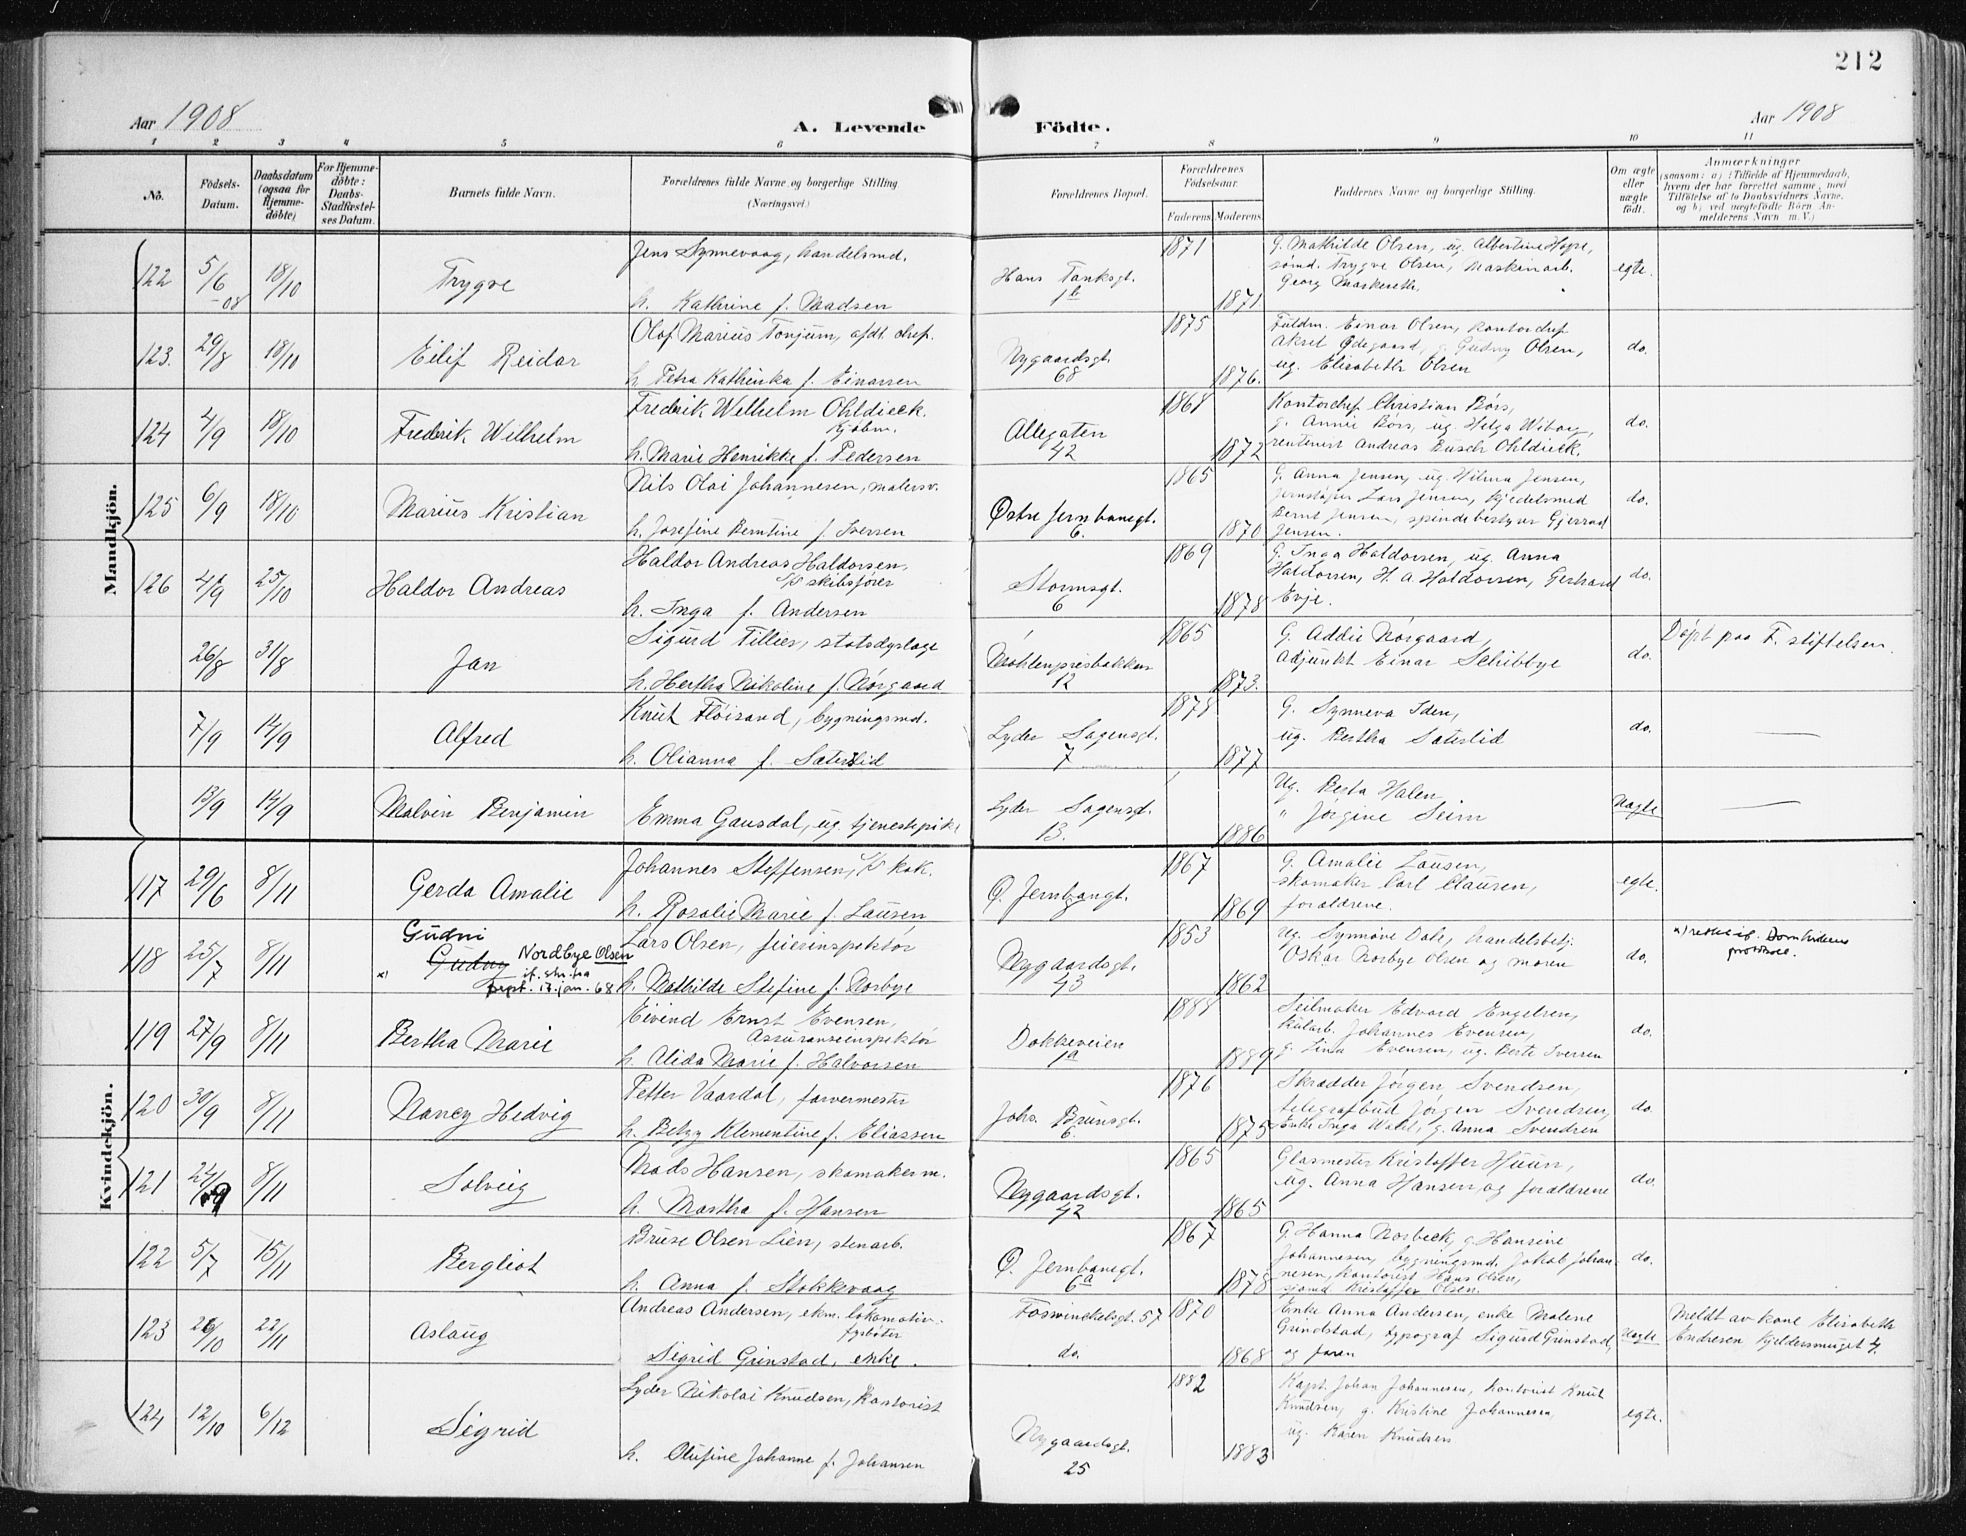 212
Aar 1908
A. Levende Födte.
Aar 1908
1 2 3 4 5 6 7 8 9 10 11
No.
Födsels-Datum.
Daabsdatum (ogsaa for Hjemme-döbte)
For Hjemme-döbte: Daabs-Stadfæstel-ses Datum.
Barnets fulde Navn.
Forældrenes fulde Navne og borgerlige Stilling (Næringsvei.)
Forældrenes Bopæl.
Forældrenes Födselsaar.
Faderens. Moderens.
Faddernes Navne og borgerlige Stilling.
Om ægte eller uægte födt.
Anmærkninger
(saasom: a) i Tilfælde af Hjemmedaab, hvem der har forrettet samme, med Tilföielse af to Daabsvidners Navne, og b) ved uægtefödte Börn An-melderens Navn m. V.)
Mandkjön.
122 5/6 -08 18/10 Trygve
Jens Synnevaag, handelsmd.
h. Kathrine f. Madsen
Hans Tanksgt. 1b
1871 1871
G. Mathilde Olsen, ug. Albertine Hope,
sømd. Trygve Olsen, Maskinarb.
Georg
egte.
123. 29/8 18/10 Eilif Reidar
Olaf Marius Tonjum, afdt. chef.
h. Petra Kathinka f. Einarsen
Nygaardsgt. 68
1875 1876.
Fuldm. Einar Olsen, Kontorchef
Aksel Ødegaard, g. Gudny Olsen,
ug. Elisabeth Olsen
do.
124 4/9 18/10 Fredrik Wilhelm
Fredrik Wilhelm Ohldieck.
kjøbm.
h. Marie Henrikke f. Pedersen
Allegaten 42
1868 1872
Kontorchef Christian Børs,
g. Annie Børs, ug. Helga Wiborg,
rentenist Andreas Busch Ohldieck.
do.
125 6/9 18/10 Marius Kristian
Nils Olai Johannesen, malersv.
h. Josefine Berntine f. Iversen
Østre Jernbanegt. 6.
1865 1870
G. Anna Jensen, ug. Hilma Jensen,
jernstøper Lars Jensen, kjedelsmed
Bernt Jensen, spindebestyrer Gjerrad
Jensen.
do.
126 4/9 25/10 Haldor Andreas
Haldor Andreas Haldorsen,
skibsfører
h. Inga f. Andersen
Stormsgt. 6
1869 1878
G. Inga Haldorsen, ug. Anna
Haldorsen, H. A. Haldorsen, Gerhard
Evje.
do.
26/8 31/8 Jan
Sigurd Tillier, statsdyrlæge
h. Hertha Nikoline f. Nørgaard
Møhlenprisbakken 12
1865 1873.
G. Addie Nørgaard,
Adjunkt Einar Schibbye
do.
Døpt paa F. stiftelsen.
7/9 14/9 Alfred
Knut Fløisand, bygningsmd.
h. Olianna f. Sæterlid
Lyder Sagensgt. 7
1878 1877
G. Synneva Iden,
ug. Bertha Sæterlid
do.
13/9 14/9 Malvin Benjamin
Emma Gausdal, ug. tjenestepike
Lyder Sagensgt. 13.
1886
Ug. Berta Halen
" Jørgine Seim
Uægte
Kvindekjön.
117 29/6 8/11 Gerda Amalie
Johannes Steffensen, kok.
h. Rosalie Marie f. Lausen
Ø. Jernbangt.
1867 1869
G. Amalie Lausen,
skomaker Carl Clausen,
forældrene.
egte.
118 25/7 8/11 Gudni
x) Gudny Nordbye Olsen
if. skr. fra
Dept. 17. jan. 68
Lars Olsen, feierinspektør
h. Mathilde Stefine f. Norbye
Nygaardsgt. 43
1853 1862
Ug. Synnøve Dale, handelsbetj.
Oskar Norbye Olsen og moren
do.
x) rettet if. protokol.
119 27/9 8/11 Bertha Marie
Eivind Ernst Evensen,
Assuranseinspektør
h. Alida Marie f. Halvorsen
Dokkeveien 1a
1888 1889
Seilmaker Edvard Engelsen,
Kularb. Johannes Evensen,
g. Lina Evensen, ug. Berte Iversen
do.
120 30/9 8/11 Nancy Hedvig
Petter Vaardal, farvermester
h. Betzy Klementine f. Eliassen
Johs. Brunsgt. 6.
1876 1875
Skrædder Jørgen Svendsen,
telegrafbud Jørgen Svendsen,
Enke Inga Wahl, g. Anna Svendsen
do.
121 24/9 8/11 Solveig
Mads Hansen, skomakerm.
h. Martha f. Hansen
Nygaardsgt. 42
1865 1865
Glasmester Kristoffer Huun,
ug. Anna Hansen og forældrene
do.
122 5/7 15/11 Bergliot
Bruse Olsen Lien, stenarb.
h. Anna f. Stokkevaag
Ø. Jernbanegt. 6a
1867 1878
G. Hanna Nosbeck, g. Hansine
Johannesen, bygningsmd. Jakob Johan-
nesen, Kontorist Hans Olsen,
sjømd. Kristoffer Olsen.
do.
123 26/10 22/11 Aslaug
Andreas Andersen, ekm. lokomotiv-
fyrbøter
Sigrid Grinstad, enke.
Fosswinckelsgt. 57
do.
1870 1868
Enke Anna Andersen, enke Malene
Grindstad, typograf Sigurd Grinstad,
og faren
Uægte
Meldt av kone Elisabeth
Andresen Kjeldersmuget 4.
124 12/10 6/12 Sigrid
Lyder Nikolai Knudsen, Kontorist
h. Olufine Johanne f. Johansen
Nygaardsgt. 25
1882 1883
Kapt. Johan Johannesen, Kontorist Knut
Knudsen, g. Kristine Johannesen,
ug. Karen Knudsen
egte.